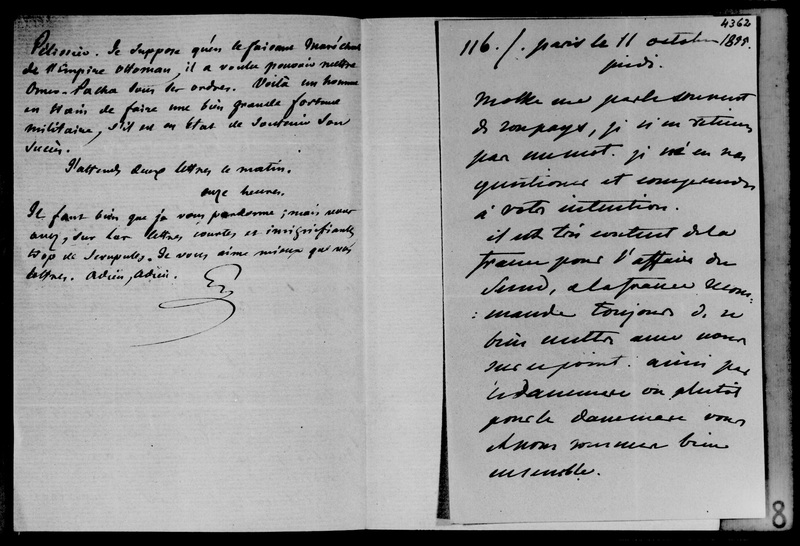 Pélissier. Je suppose qu'en le faisant Maréchal
de l'Empire Ottoman, il a voulu pouvoir mettre
Omer-Pacha sous ses ordres. Voilà un homme
en train de faire une bien grande fortune
militaire, s'il est en état de soutenir son
succès.
J'attends deux lettres ce matin.
onze heures.
Il faut bien que je vous pardonne ; mais vous
avez, sur les lettres courtes et insignifiantes
trop de scrupules. Je vous aime mieux que vos
lettres. Adieu, Adieu.
4362
116./. paris le 11 octobre 1855.
jeudi.
Molke me parle souvent
de son pays, je
par un mot. je
questionner et comprendre
à votre intention.
il est très content de la
france pour l'affaire du
Sund, a la france
mande toujours de se
bien mettre avec nous
sur ce point. ainsi par
le danemarc ou plutôt
pour le danemarc vous
et nous sommes bien
ensemble.
8